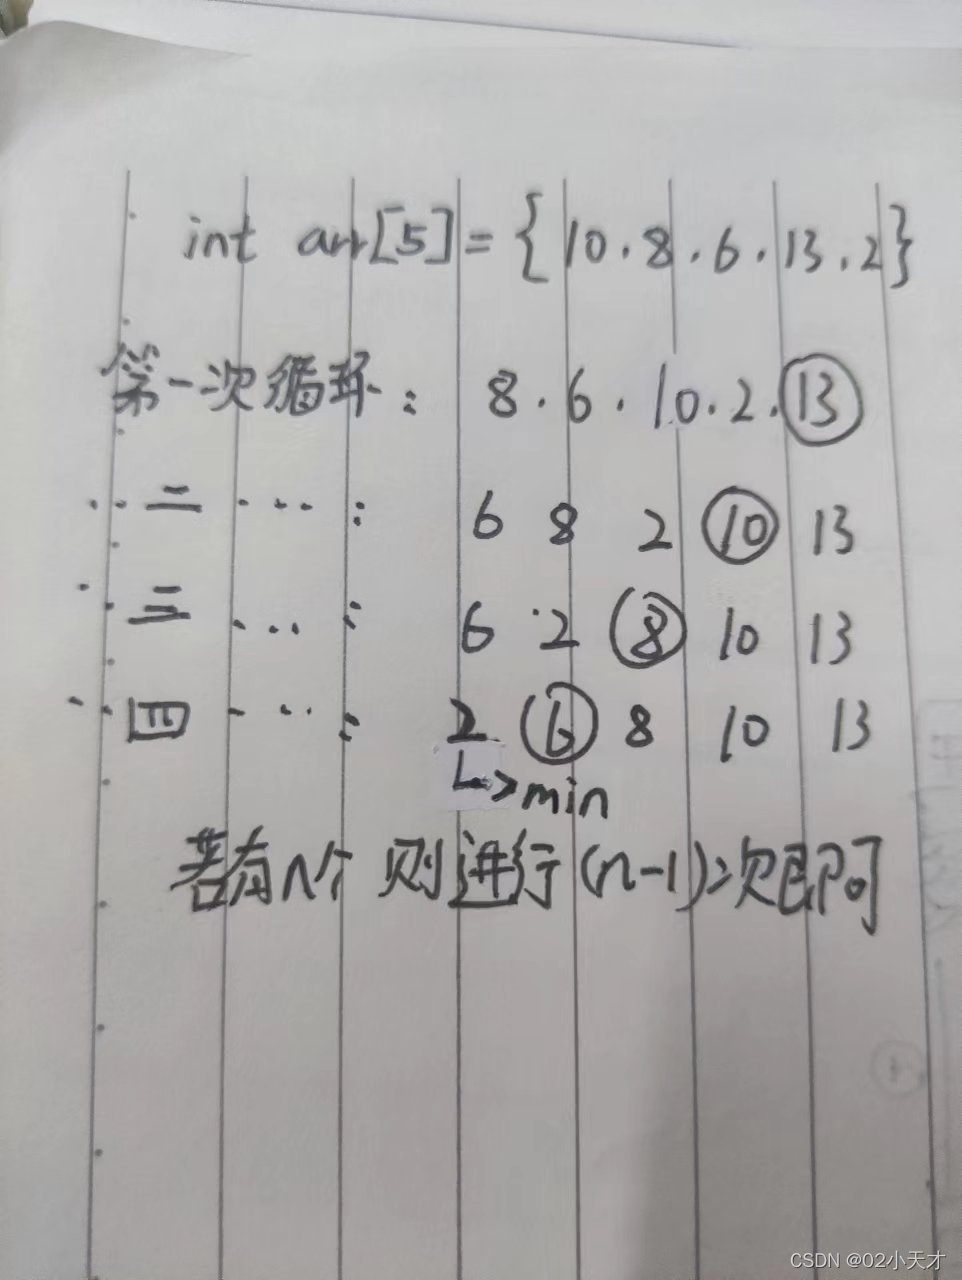 int arr[5]={10.8.6.13.2}
第一次循环: 8.6.10.2.13
..二....: 6 8 2 10 13
..三...: 6 2 8 10 13
..四....: 2 6 8 10 13
↳>min
若有n个则进行(n-1)次即可
CSDN @02小天才